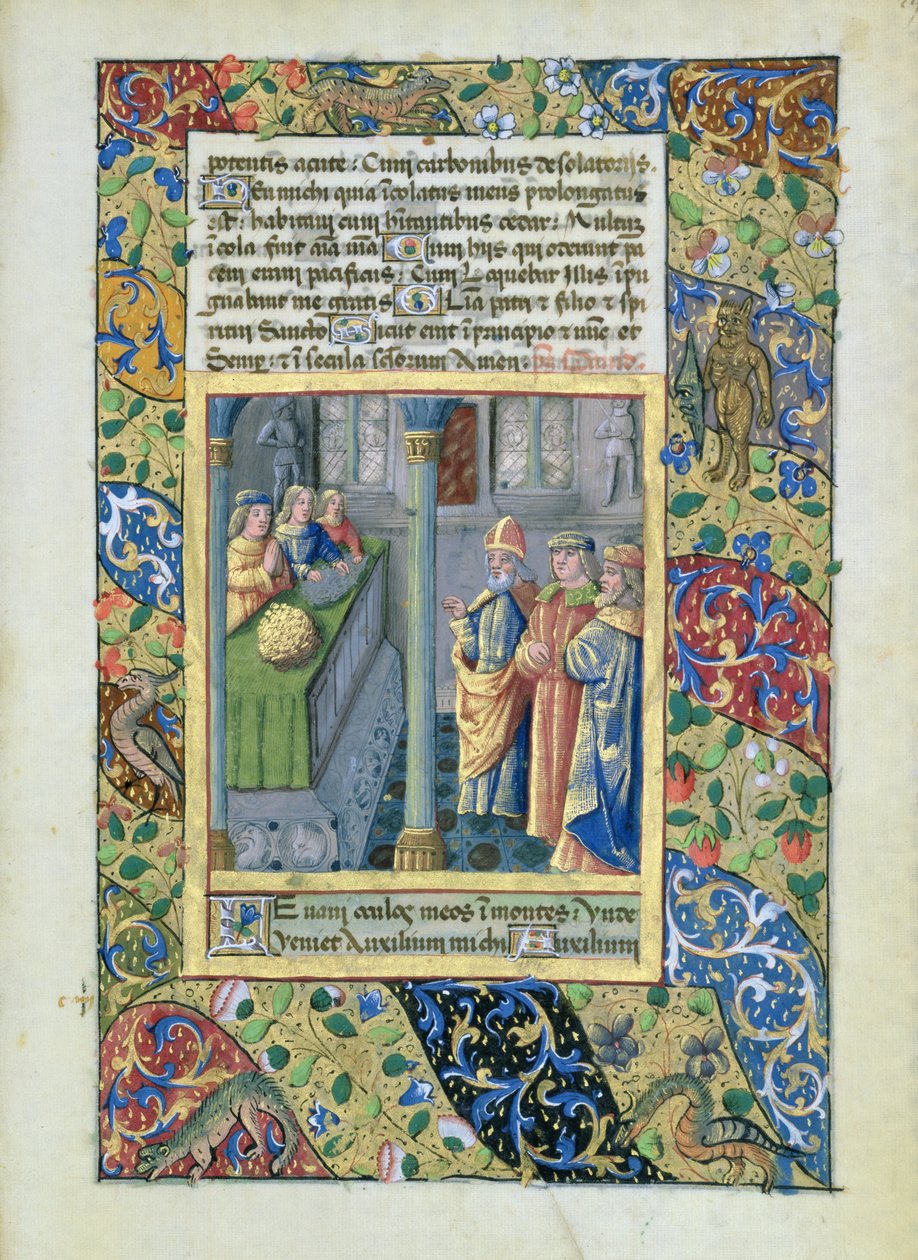 potentis acute: Cum carbonibus desolatorijs.
Heu michi quia īcolatus meus prolongatus
habitaui cum hītantibus cedar: Multuꝫ
īcola fuit aīa mea Cum hijs qui oderunt pa
cem eram pacificus: Cum Loquebar Illis īpu
gnabant me gratis Glīa patri ⁊ filio ⁊ spi
ritui Sancto Sicut erat ī principio ⁊ nūc et
Semp: ⁊ ī secula sclorum Amen.
Leuaui oculos meos ī montes: Vnde
Veniet Auxilium michi Auxilium